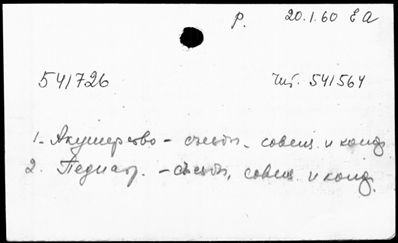 р. 20.1.60 ЕА
541726 Чит. 541564
1. Акушерство - съезды, совещ. и конф.
2. Педиатр. - съезды, совещ. и конф.